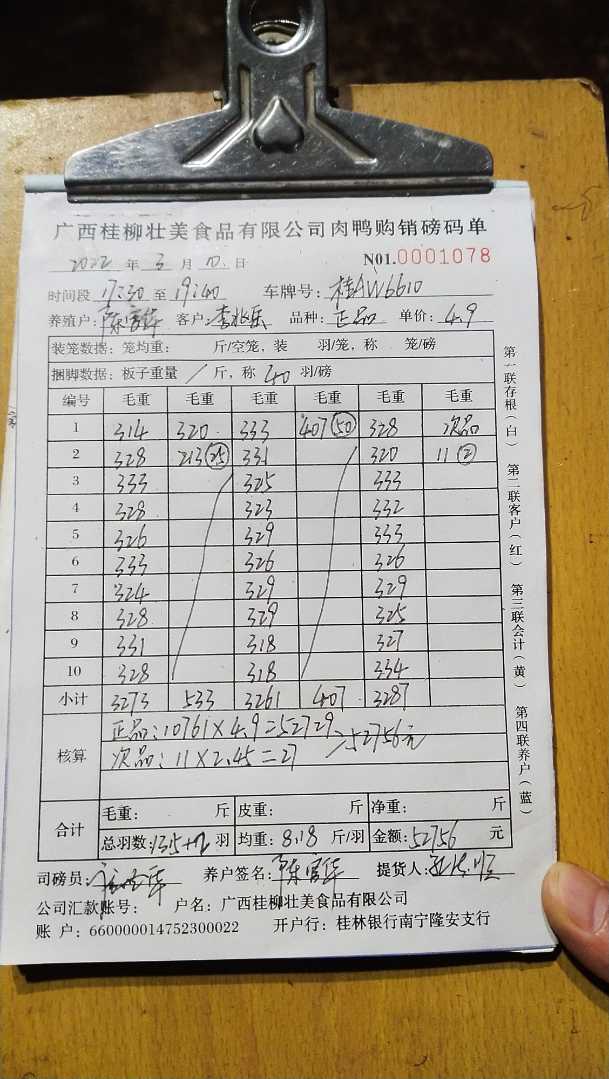 广西桂柳壮美食品有限公司肉鸭购销磅码单
2022 年 3 月 10 日 N01.0001078
时间段 17:30 至 19:40 车牌号: 桂AW6610
养殖户: 陈富华 客户: 李兆乐 品种: 正品 单价: 4.9
装笼数据: 笼均重: 斤/空笼, 装 羽/笼, 称 笼/磅
捆脚数据: 板子重量 / 斤, 称 40 羽/磅
编号 毛重 毛重 毛重 毛重 毛重 毛重
1 314 320 333 407 (50) 328 次品
2 328 213 (25) 331 320 11 (2)
3 333 325 333
4 328 323 332
5 326 329 333
6 333 326 326
7 324 329 329
8 328 329 325
9 331 318 327
10 328 318 334
小计 3273 533 3261 407 3287
核算
正品: 10761 X 4.9 = 52729
次品: 11 X 2.45 = 27
=52756元
合计
毛重: 斤 皮重: 斤 净重: 斤
总羽数: 1315+2 羽 均重: 8.18 斤/羽 金额: 52756 元
司磅员: 养户签名: 陈富华 提货人:
公司汇款账号: 户名: 广西桂柳壮美食品有限公司
账 户: 660000014752300022 开户行: 桂林银行南宁隆安支行
第一联存根(白) 第二联客户(红) 第三联会计(黄) 第四联养户(蓝)